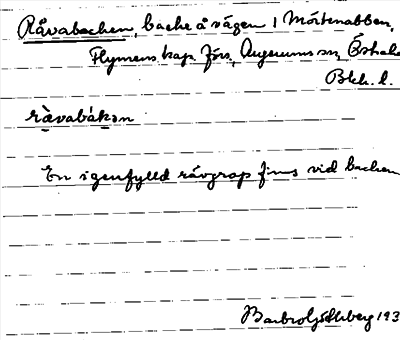 Råvabacken, backe å vägen i Mörtenabben,
Flymens kap. förs., Augerums sn, Östra
Blek. l.
ràvabákən
En igenfylld rävgrop finns vid backen
Barbro Söderberg 193